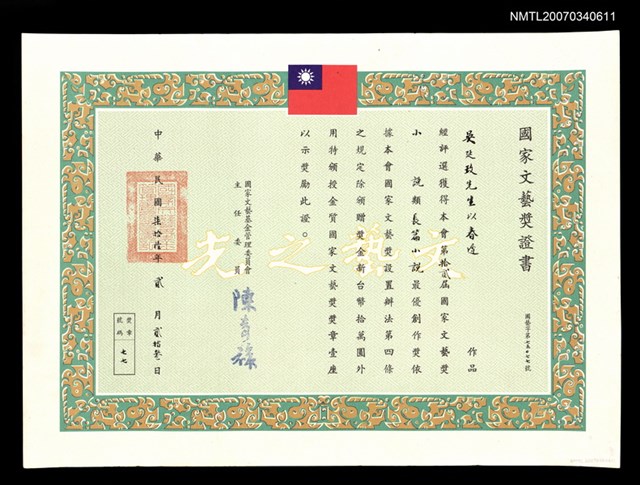 NMTL20070340611
國家文藝獎證書
國藝字第七五〇七七號
吳延玫先生以春遲 作品
經評選獲得本會第拾貳屆國家文藝獎
小說類長篇小說最優創作獎依
據本會國家文藝獎設置辦法第四條
之規定除頒贈獎金新台幣拾萬圓外
用特頒授金質國家文藝獎獎章壹座
以示獎勵此證。
國家文藝基金管理委員會
主任委員
陳奇祿
中華民國柒拾陸年貳月貳拾叁日
獎章號碼 七七
文藝之光